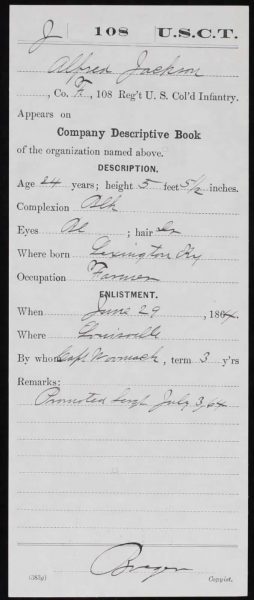 J 108 U.S.C.T.
Alfred Jackson
, Co. F, 108 Reg't U. S. Col'd Infantry.
Appears on
Company Descriptive Book
of the organization named above.
DESCRIPTION.
Age 24 years; height 5 feet 5½ inches.
Complexion Blk
Eyes Bl ; hair
Where born Lexington Ky
Occupation Farmer
ENLISTMENT.
When June 29, 1864.
Where Louisville
By whom Capt Womack, term 3 y'rs
Remarks:
Promoted Sergt July 3, 64
(383g) Copyist.